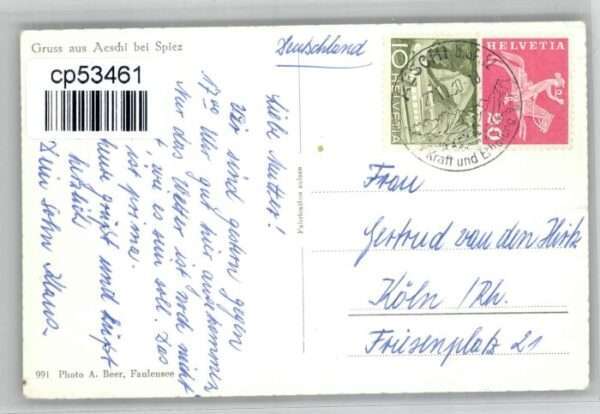 Gruss aus Aeschi bei Spiez
cp53461
Deutschland
10
HELVETIA
HELVETIA
20
AESCHI b. SPIEZ
Kraft und
Liebe Mutter!
Wir sind gestern gegen
17⁰⁰ Uhr gut hier ankommen
Nur das Wetter ist noch nicht
so wie es sein soll. Das
ist prima.
grüßt und küßt
herzlich
Dein Sohn Klaus
Fabrikation suisse
Frau
Gertrud van den Hirtz
Köln /Rh.
Friesenplatz 21
991 Photo A. Beer, Faulensee